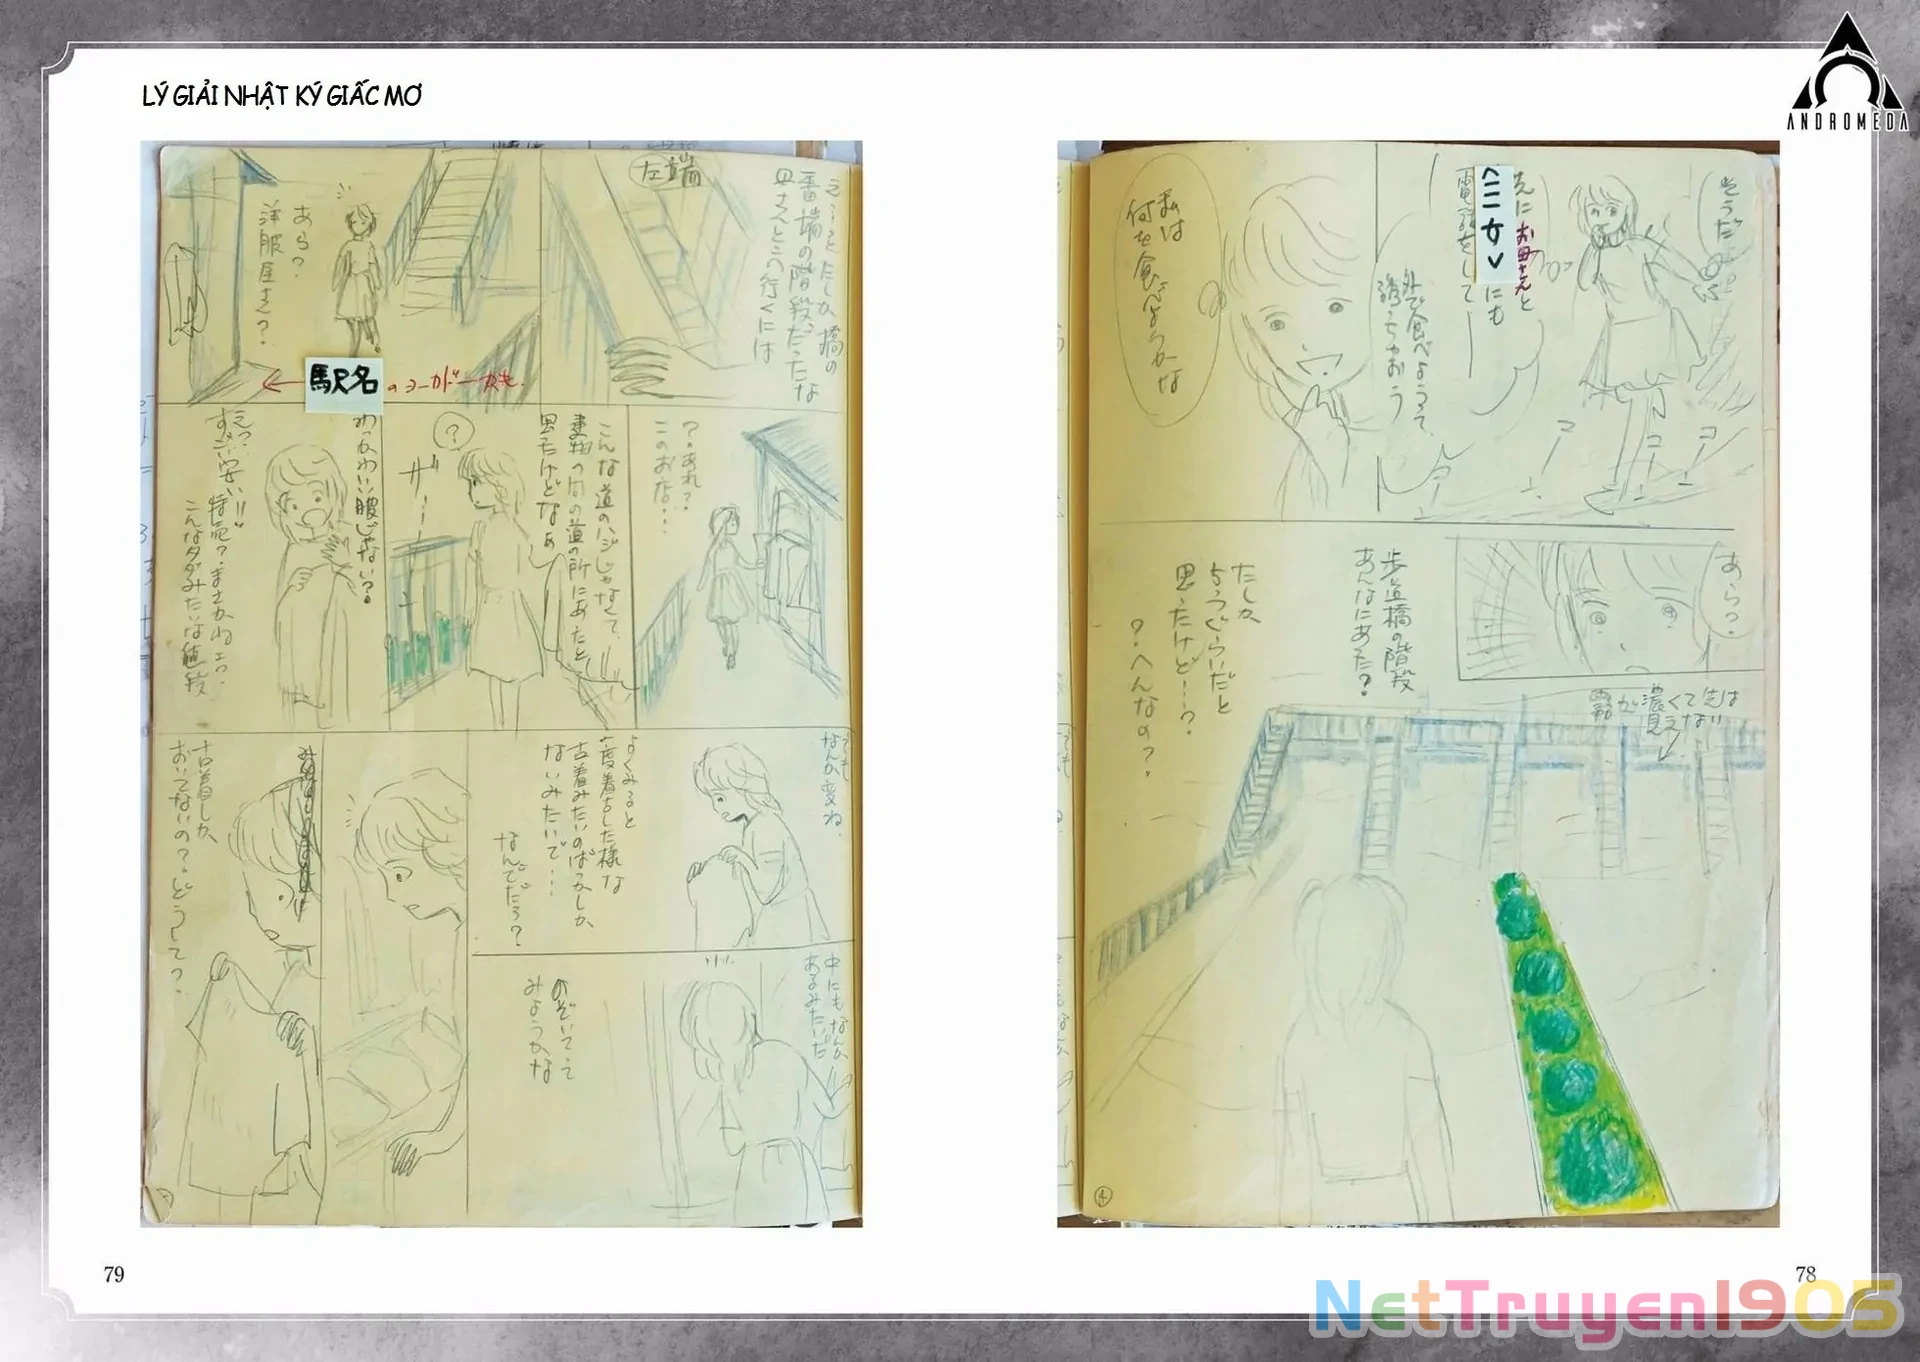 LÝ GIẢI NHẬT KÝ GIẤC MƠ
ANDROMEDA
そうだ
先にお母さんと
三女にも
電話をして
外で食べようって
誘っちゃおう
私は
何を食べようかな
コ
コ
あら?
霧が濃くて先は
見えない
歩道橋の階段
あんなにあった?
たしか
5つぐらいだと
思ったけど…?
?へんなの?
4
78
え…っとたしか橋の
一番端の階段だったな
母さんと行くには
左端
あら?
洋服屋さん?
駅名
?あれ?
このお店…
こんな道のハジじゃなくて、
建物の間の道の所にあったと
思ったけどなぁ
?
わっかわいい服じゃない?
え?
すごい安い!!
特売?まさかねェ?
こんなタダみたいな値段
でも
なんか変ね、
よくみると
一度着をした様な
古着みたいのばっかしか
ないみたいで…
なんでだろ?
中にもなんか
あるみたいだ
のぞいて
みようかな
古着しか
おいてないの?どうして?
79
NetTruyen1905